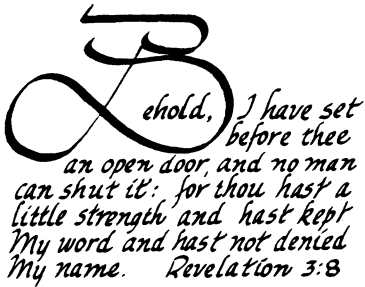 Behold, I have set
before thee
an open door, and no man
can shut it: for thou hast a
little strength and hast kept
My word and hast not denied
My name. Revelation 3:8